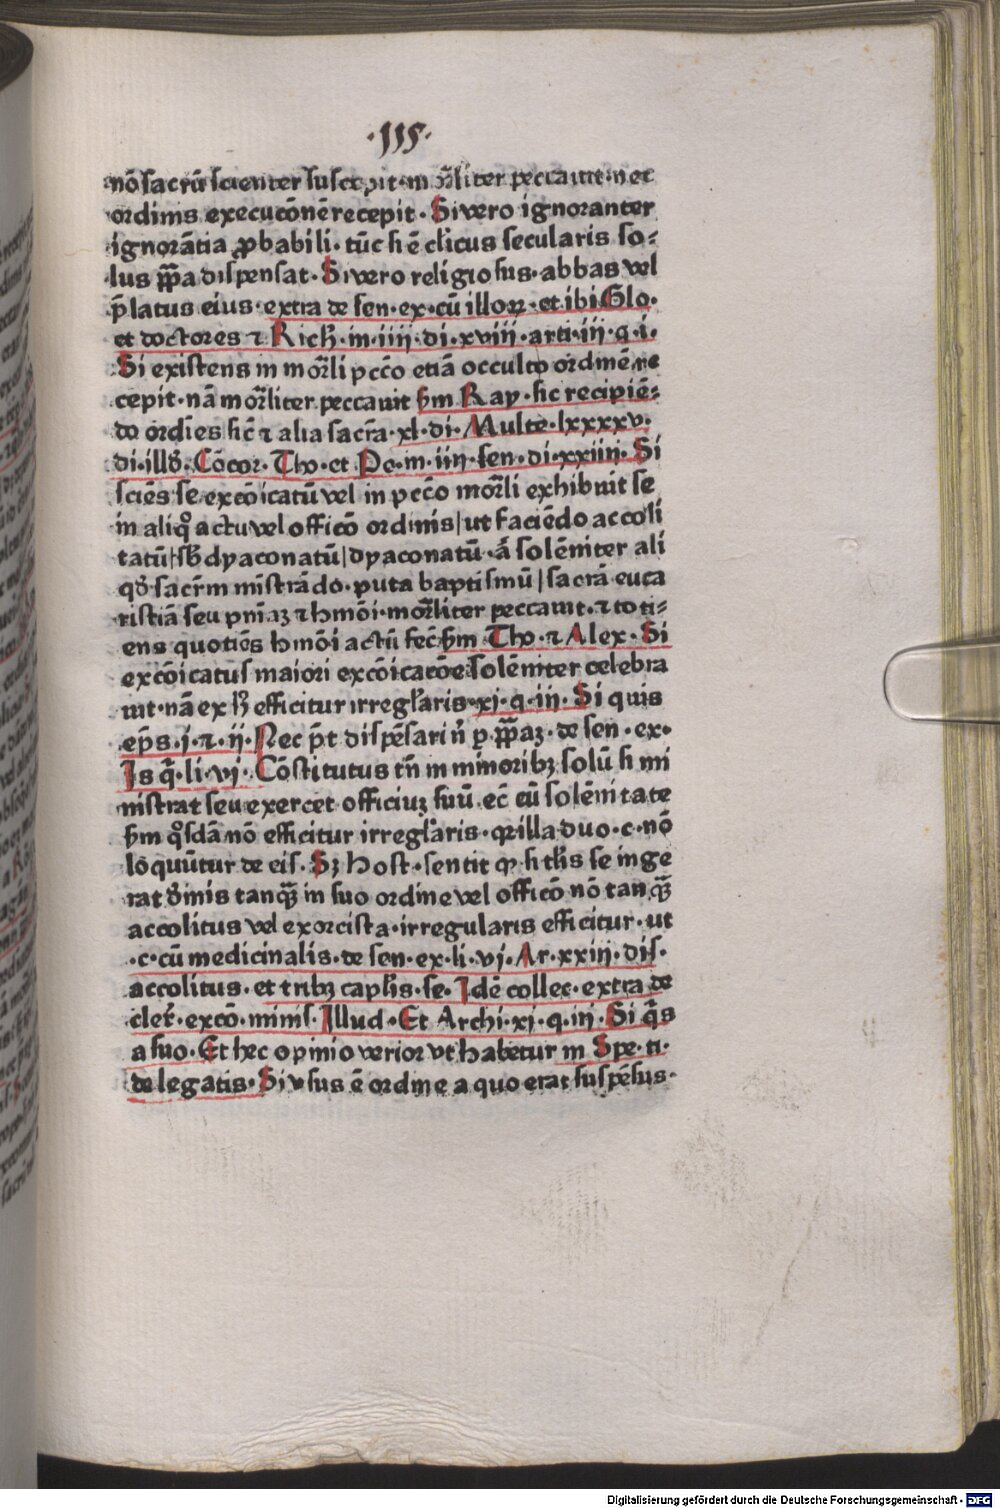 ·115·
nō sacrū scienter suscepit·mor̄liter peccauit·nec
ordinis execucōnē recepit· Si vero ignoranter
ignorātia ꝓbabili· tūc si ē cl̓icus secularis so⸗
lus pp̄a dispensat· Si vero religiosus·abbas vel
p̄latus eius·extra de sen·ex·cū illoꝝ·et ibi Glo·
et doctores ⁊ Rich̄·in·iiij·di·xviij·arti·iij·q·i·
Si existens in mor̄li pccō etiā occulto ordinē re
cepit·nā mor̄liter peccauit ẜm Ray·sic recipiē⸗
do ordīes sic̄ ⁊ alia sacr̄a·xl·di· Multe·lxxxxv·
di·illd̓· Cōcor·Tho·et Pe·in·iiij·sen·di·xxiiij· Si
sciēs se excōicatū vel in pccō mor̄li exhibuit se
in aliq̊ actu vel officō ordinis/ut faciēdo accoli
tatū/sb̄dyaconatū/dyaconatū·āt solēniter ali
qd̓ sacr̄m mīstrādo·puta baptismū/sacrā euca
ristiā seu pnīaꝫ ⁊ hmōi·mor̄liter peccauit·⁊ toti⸗
ens quotiēs hmōi actū fec̄ ẜm Tho·⁊ Alex· Si
excōicatus maiori excōicacōe solēniter celebra
uit·nā ex hͦ efficitur irregl̓aris·xj·q·iij· Si quis
ep̄s·j·⁊·ij· Nec pōt dispēsari nͥ ꝑ pp̄aꝫ·de sen·ex·
Is q̄·li·vj· Cōstitutus tn̄ in minoribꝫ solū si mi
nistrat seu exercet officiuꝫ suū·ec̄ cū solēnitate
ẜm q̊sdā nō efficitur irregl̓aris·qꝛ illa duo·c·nō
loquūtur de eis· Sꝫ Host·sentit ꝙ si tl̓is se inge
rat d̓inis tanqꝫ in suo ordine vel officō nō tanqꝫ
accolitus vel exorcista·irregularis efficitur·ut
·c·cū medicinalis·de sen·ex·li·vj· Ar·xxiij·dis·
accolitus·et tribꝫ capl̓is·se· Idē collec·extra de
cler̓·excō·minis· Illud· Et Archi·xj·q·iij· Si q̄s
a suo· Et hec opinio verior vt habetur in Spe·ti·
de legatis· Si vsus ē ordine a quo erat suspēsus·
Digitalisierung gefördert durch die Deutsche Forschungsgemeinschaft - DFG